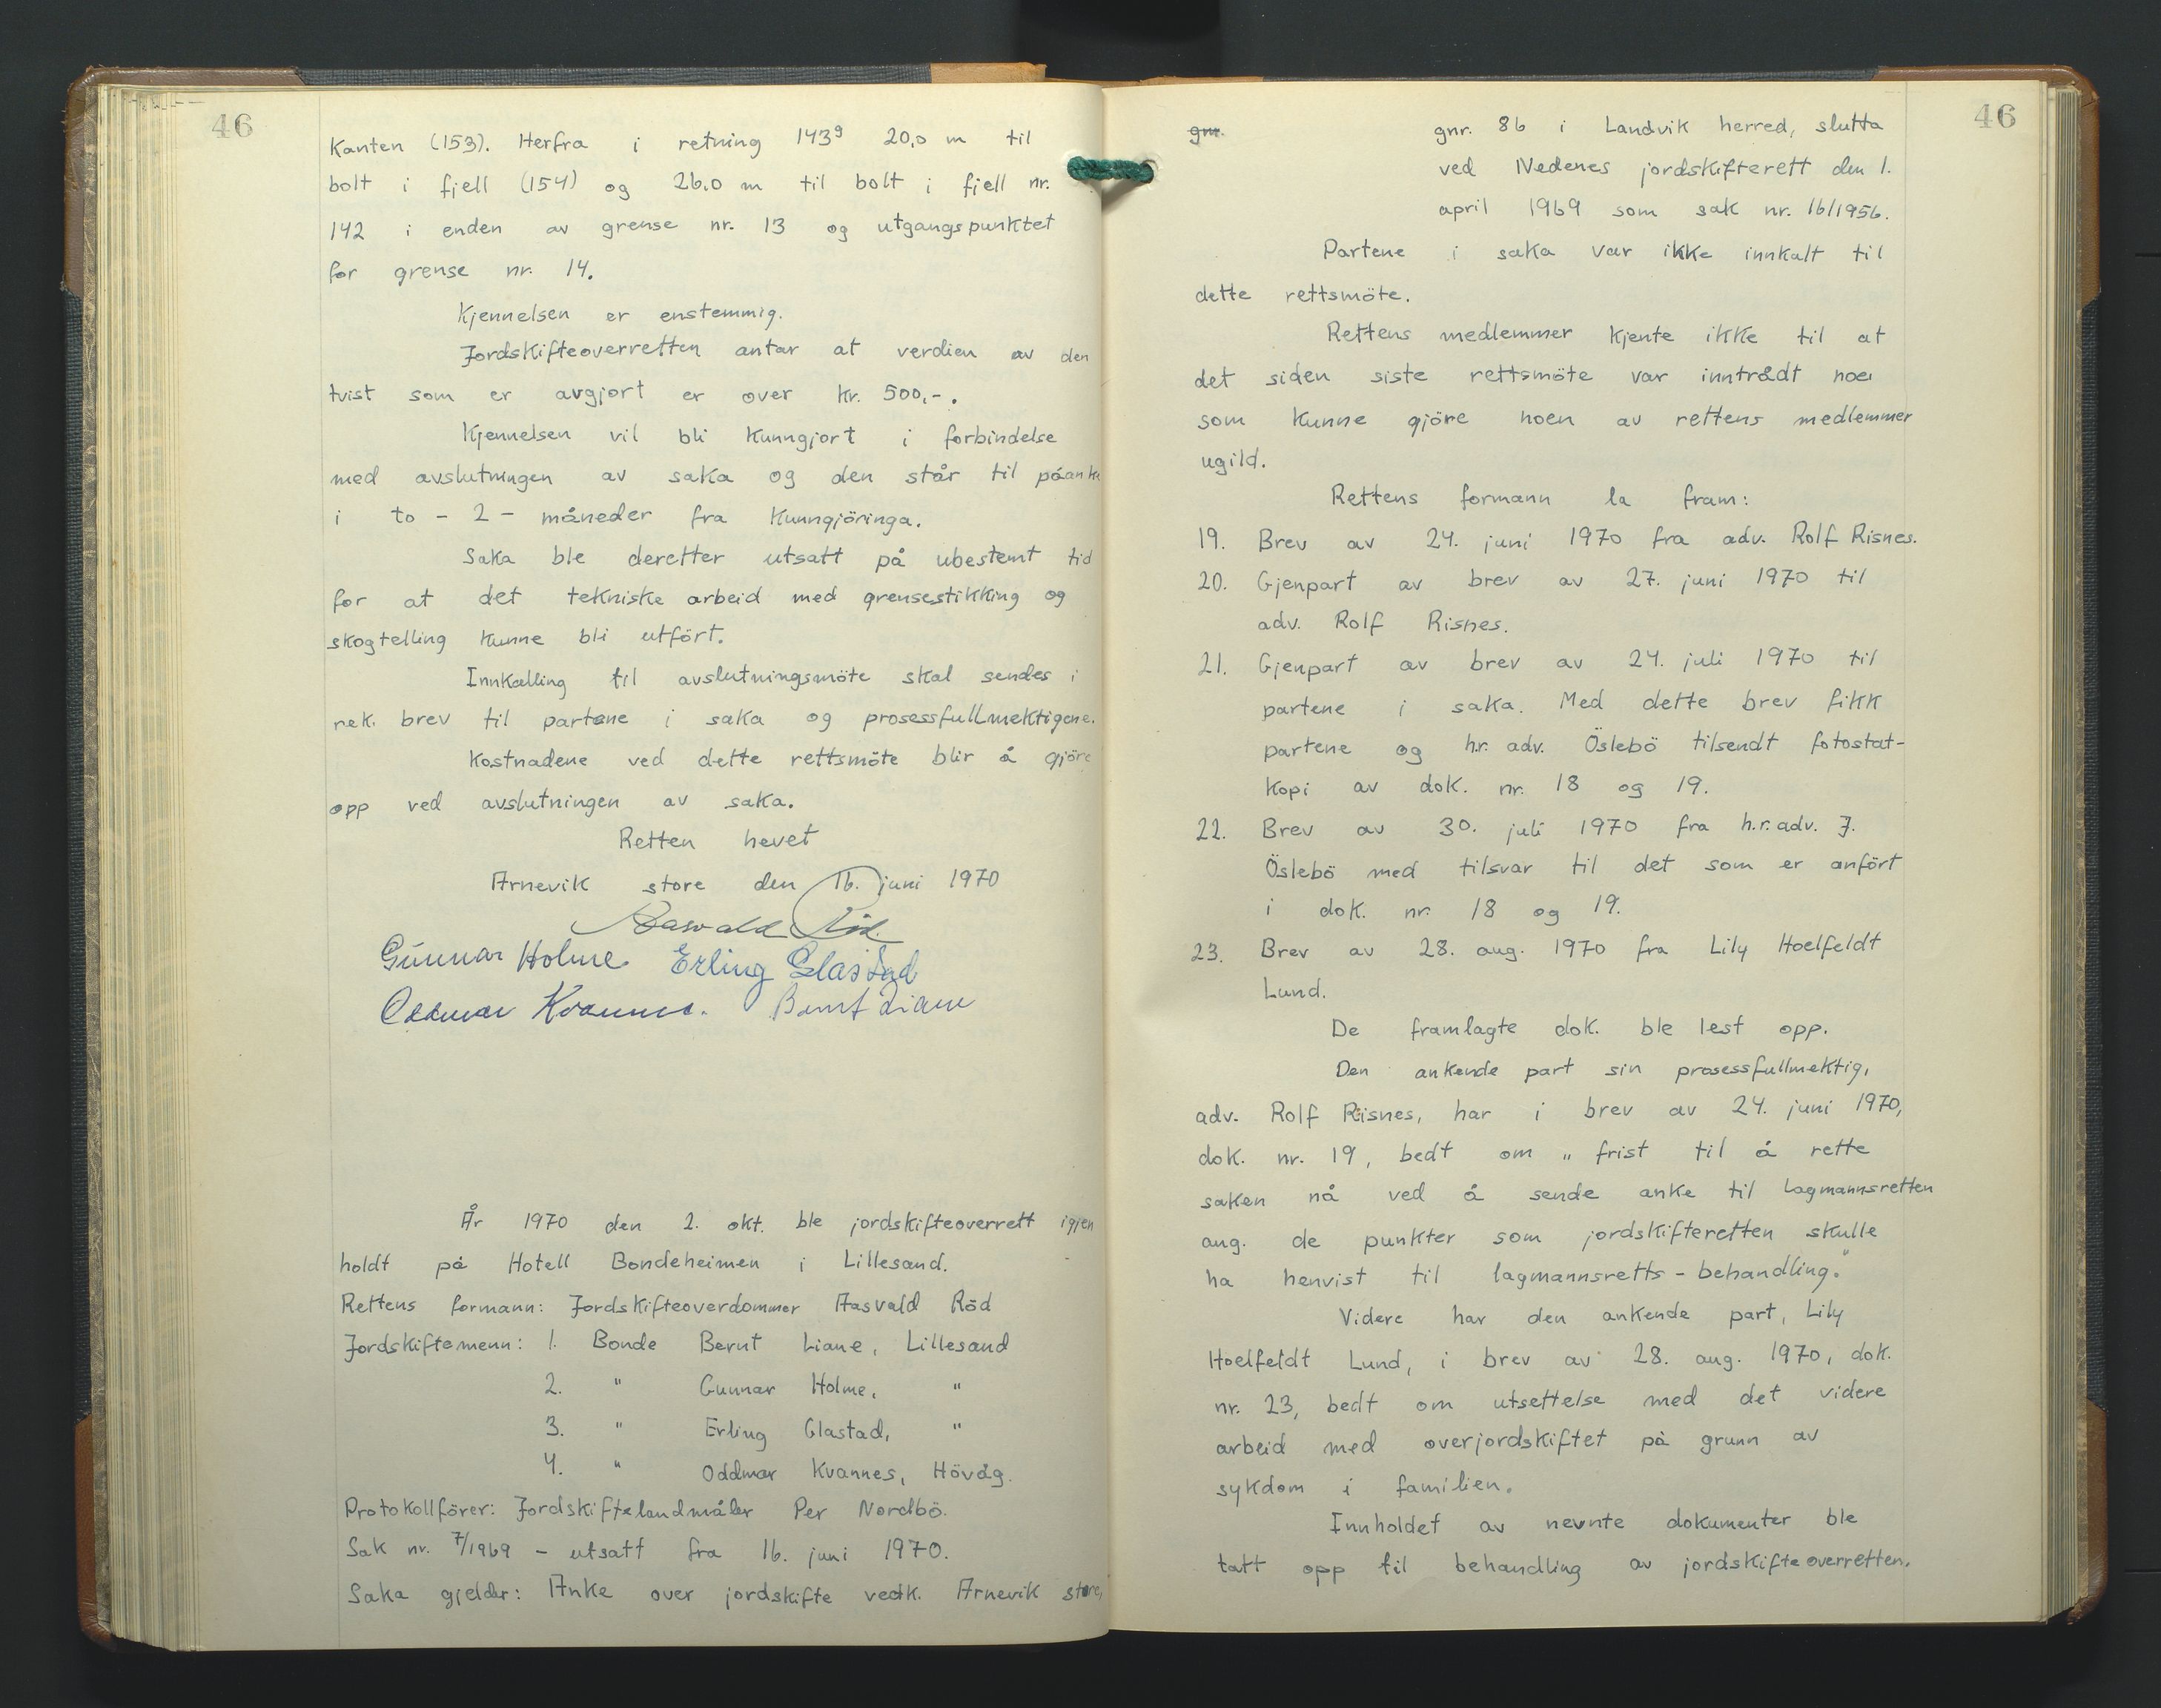 46
Kanten (153). Herfra i retning 143g 20,0 m til
bolt i fjell (154) og 26,0 m til bolt i fjell nr.
142 i enden av grense nr. 13 og utgangspunktet
for grense nr. 14.
Kjennelsen er enstemmig.
Jordskifteoverretten antar at verdien av den
tvist som er avgjort er over kr. 500,-.
Kjennelsen vil bli kunngjort i forbindelse
med avslutningen av saka og den står til påanke
i to - 2 - måneder fra kunngjöringa.
Saka ble deretter utsatt på ubestemt tid
for at det tekniske arbeid med grensestikking og
skogtelling kunne bli utfört.
Innkalling til avslutningsmöte skal sendes i
rek. brev til partene i saka og prosessfullmektigene.
Kostnadene ved dette rettsmöte blir å gjöre
opp ved avslutningen av saka.
Retten hevet
Arnevik store den 16. juni 1970
Aasvald Röd.
Gunnar Holme Erling Glastad
Oddmar Kvannes. Bernt Liane
År 1970 den 2. okt. ble jordskifteoverrett igjen
holdt på Hotell Bondeheimen i Lillesand.
Rettens formann: Jordskifteoverdommer Aasvald Röd
Jordskiftemenn: 1. Bonde Bernt Liane, Lillesand
2. " Gunnar Holme, "
3. " Erling Glastad, "
4. " Oddmar Kvannes, Hövåg.
Protokollförer: Jordskiftelandmåler Per Nordbö.
Sak nr. 7/1969 - utsatt fra 16. juni 1970.
Saka gjelder: Anke over jordskifte vedk. Arnevik store,
46
gnr.
gnr. 86 i Landvik herred, slutta
ved Nedenes jordskifterett den 1.
april 1969 som sak nr. 16/1956.
Partene i saka var ikke innkalt til
dette rettsmöte.
Rettens medlemmer kjente ikke til at
det siden siste rettsmöte var inntrådt noe
som kunne gjöre noen av rettens medlemmer
ugild.
Rettens formann la fram:
19. Brev av 24. juni 1970 fra adv. Rolf Risnes.
20. Gjenpart av brev av 27. juni 1970 til
adv. Rolf Risnes.
21. Gjenpart av brev av 24. juli 1970 til
partene i saka. Med dette brev fikk
partene og h.r. adv. Öslebö tilsendt fotostat-
kopi av dok. nr. 18 og 19.
22. Brev av 30. juli 1970 fra h.r. adv. J.
Öslebö med tilsvar til det som er anfört
i dok. nr. 18 og 19.
23. Brev av 28. aug. 1970 fra Lily Hoelfeldt
Lund.
De framlagte dok. ble lest opp.
Den ankende part sin prosessfullmektig,
adv. Rolf Risnes, har i brev av 24. juni 1970,
dok. nr. 19, bedt om „ frist til å rette
saken nå ved å sende anke til lagmannsretten
ang. de punkter som jordskifteretten skulle
ha henvist til lagmannsretts - behandling."
Videre har den ankende part, Lily
Hoelfeldt Lund, i brev av 28. aug. 1970, dok.
nr. 23, bedt om utsettelse med det videre
arbeid med overjordskiftet på grunn av
sykdom i familien.
Innholdet av nevnte dokumenter ble
tatt opp til behandling av jordskifteoverretten.